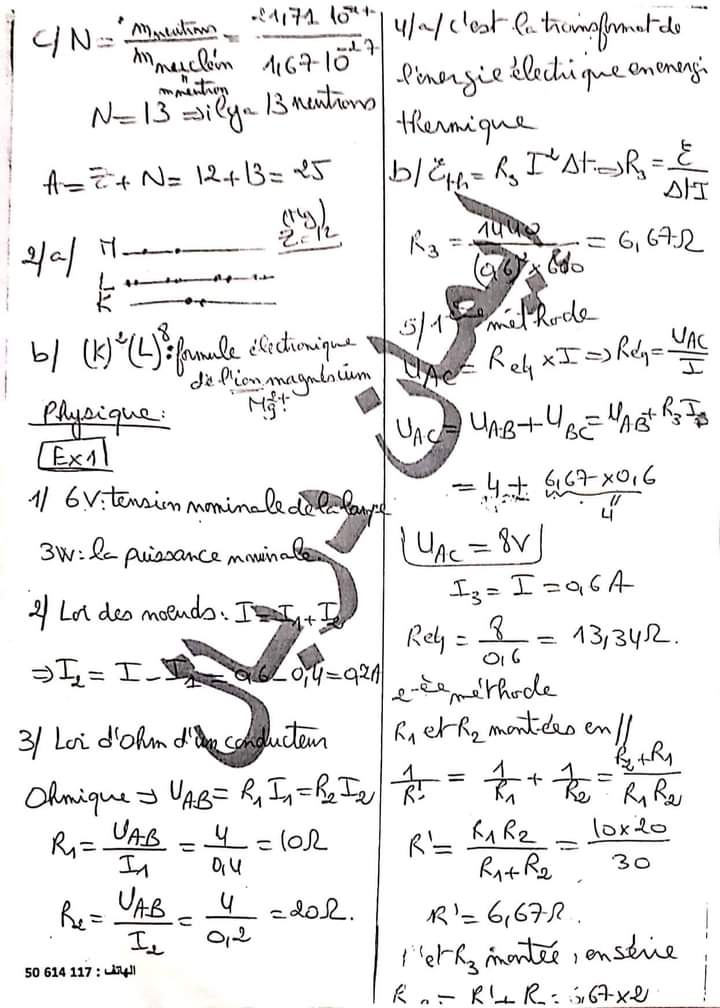 c/ N = m neutrons / m nucléon = 21,71 10⁻²⁷ / 1,67 10⁻²⁷
m neutron
N = 13 ⇒ il y a 13 neutrons
A = Z + N = 12 + 13 = 25
(Mg)
Z = 12
2/a/ M
L
K
b/ (K)²(L)⁸ : formule électronique
de l'ion magnésium
Mg²⁺
Physique :
Ex1
1/ 6V : tension nominale de la lampe
3W : la puissance nominale.
2/ Loi des noeuds : I = I₁ + I₂
⇒ I₂ = I - I₁ = 0,6 - 0,4 = 0,2A
3/ Loi d'ohm d'un conducteur
Ohmique ⇒ UAB = R₁I₁ = R₂I₂
R₁ = UAB / I₁ = 4 / 0,4 = 10Ω
R₂ = UAB / I₂ = 4 / 0,2 = 20Ω.
50 614 117 : الهاتف
4/a/ c'est la transformat de
l'énergie électrique en energi
thermique
b/ Eth = R₃ I² Δt ⇒ R₃ = E / ΔtI
R₃ = 1440 / (0,6)² × 600 = 6,67Ω
5/ 1ère méthode
UAC = Réq × I ⇒ Réq = UAC / I
UAC = UAB + UBC = UAB + R₃ I₃
= 4 + 6,67 × 0,6
4
UAC = 8V
I₃ = I = 0,6 A
Réq = 8 / 0,6 = 13,34Ω.
2-ème méthode
R₁ et R₂ montées en //
1/R' = 1/R₁ + 1/R₂ = R₂ + R₁ / R₁ R₂
R' = R₁ R₂ / R₁ + R₂ = 10 × 20 / 30
R' = 6,67Ω.
et R₃ montée, en série